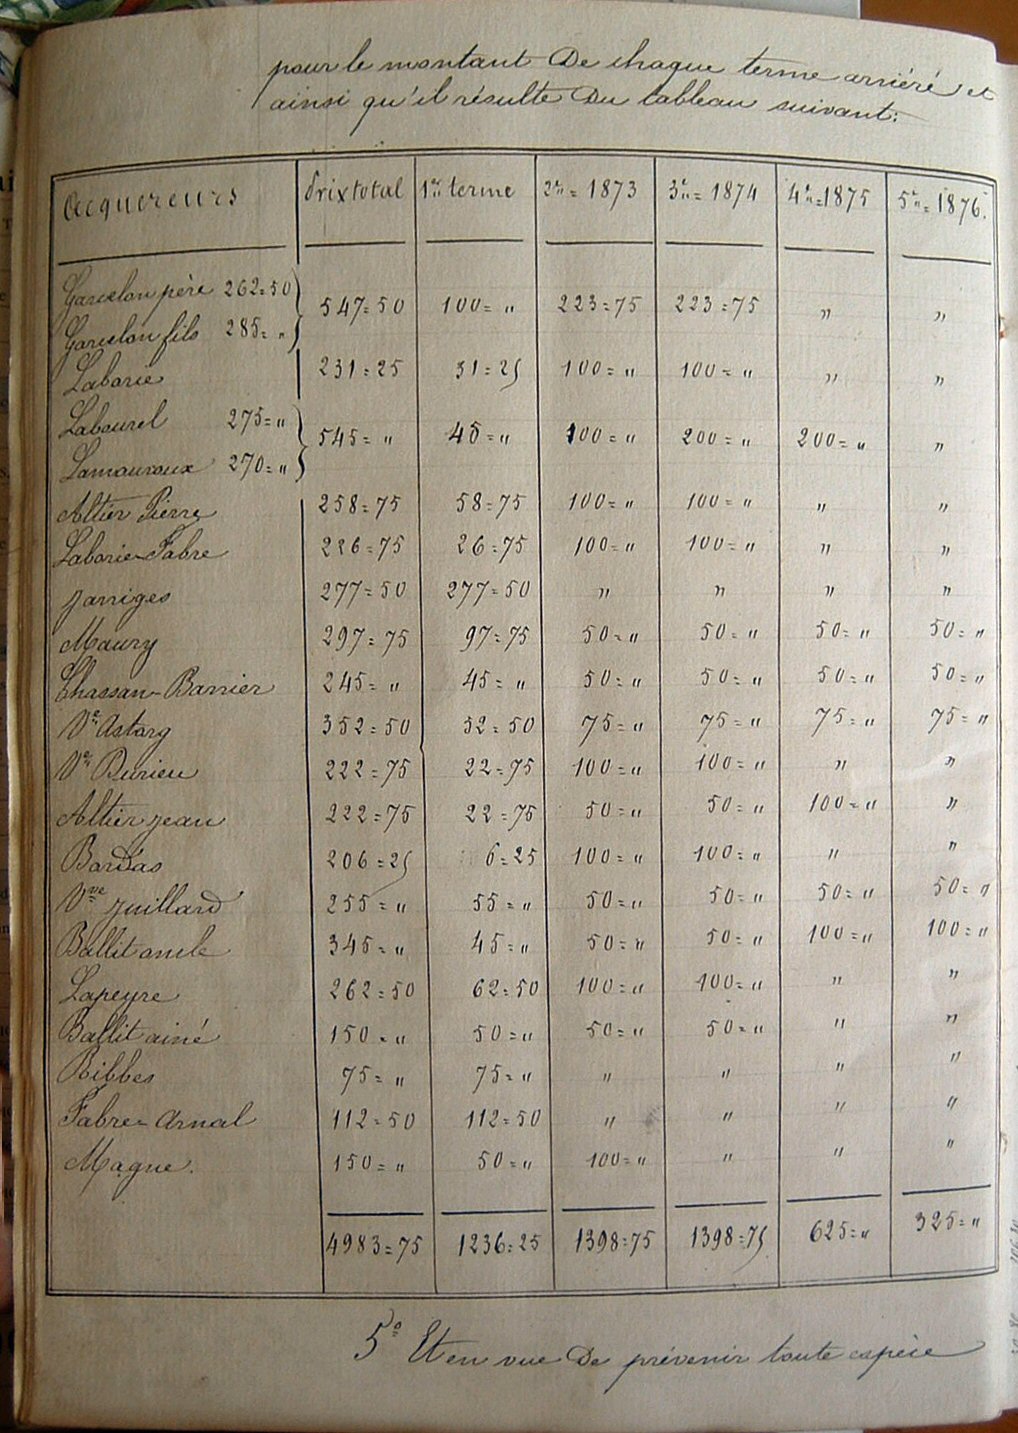 pour le montant De chaque terme arriéré et
ainsi qu'il résulte Du tableau suivant:
Acquereurs Prix total 1er terme 2e = 1873 3e = 1874 4e = 1875 5e = 1876.
Garcelon père 262=50
547=50 100= " 223=75 223=75 " "
Garcelon fils 285= "
Laborie 231=25 31=25 100= " 100= " " "
Labourel 275= "
545= " 45= " 100= " 200= " 200= " "
Lamouroux 270= "
Altier Pierre 258=75 58=75 100= " 100= " " "
Laborie-Fabre 226=75 26=75 100= " 100= " " "
Jarriges 277=50 277=50 " " " "
Maury 297=75 97=75 50= " 50= " 50= " 50= "
Chassan-Barrier 245= " 45= " 50= " 50= " 50= " 50= "
Ve Astorg 352=50 52=50 75= " 75= " 75= " 75= "
Ve Durieu 222=75 22=75 100= " 100= " " "
Altier Jean 222=75 22=75 50= " 50= " 100= " "
Bardas 206=25 6=25 100= " 100= " " "
Vve Juillard 255= " 55= " 50= " 50= " 50= " 50= "
Ballit oncle 345= " 45= " 50= " 50= " 100= " 100= "
Lapeyre 262=50 62=50 100= " 100= " " "
Ballit ainé 150= " 50= " 50= " 50= " " "
Ribbes 75= " 75= " " " " "
Fabre-Arnal 112=50 112=50 " " " "
Magne. 150= " 50= " 100= " " " "
4983=75 1236=25 1398=75 1398=75 625= " 325= "
5° Et en vue De prévenir toute espèce